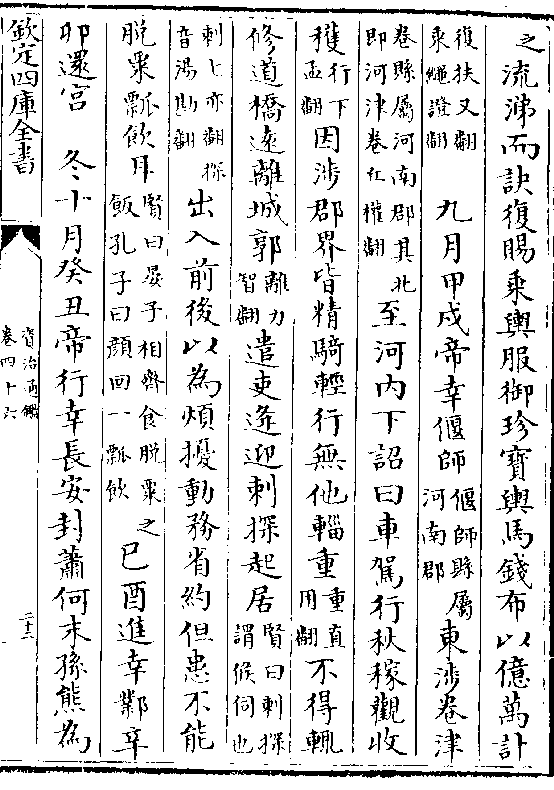 之流涕而訣復賜乘輿服御珍寶輿馬錢布以億萬計
復扶又翻乘繩證翻 九月甲戌帝幸偃師偃師縣屬河南郡東涉卷津
卷縣屬河南郡其北即河津卷丘權翻至河内下詔曰車駕行秋稼觀收
穫行下孟翻因涉郡界皆精騎輕行無他輜重重直用翻不得輒
修道橋逺離城郭離力智翻遣吏逄迎刺探起居賢曰刺探謂候伺也
刺七亦翻探音湯勘翻出入前後以為煩擾動務省約但患不能
脫粟瓢飲耳賢曰晏子相齊食脫粟之飯孔子曰顔回一瓢飲已酉進幸鄴辛
卯還宫 冬十月癸丑帝行幸長安封蕭何末孫熊為
欽定四庫全書
資治通鑑
卷四十六
二十二